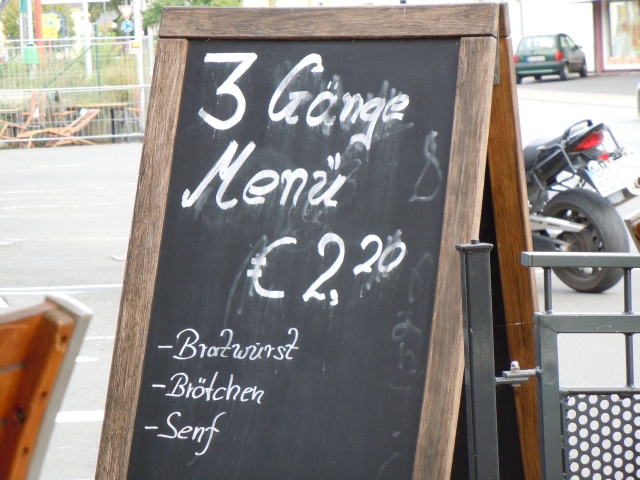 3 Gänge
Menü
€ 2,20
-Bratwurst
-Brötchen
-Senf